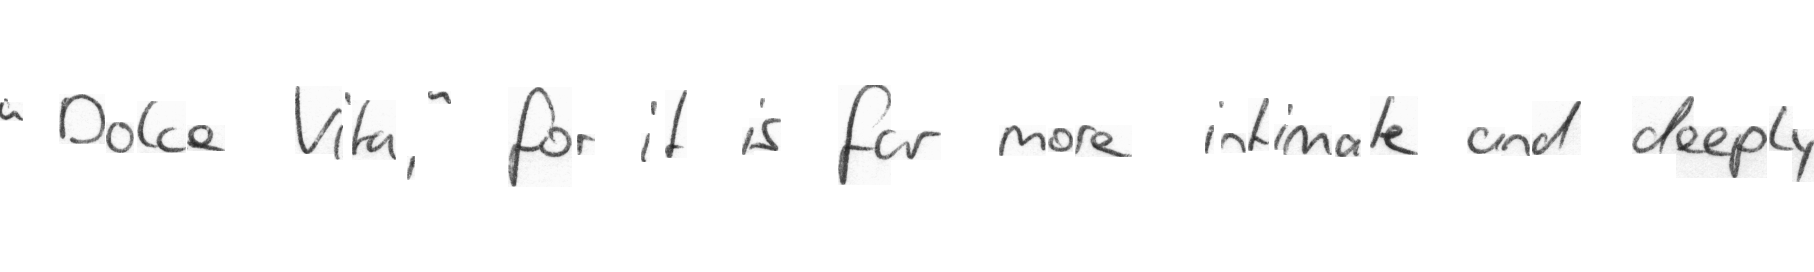 "Dolce Vita," for it is far more intimate and deeply